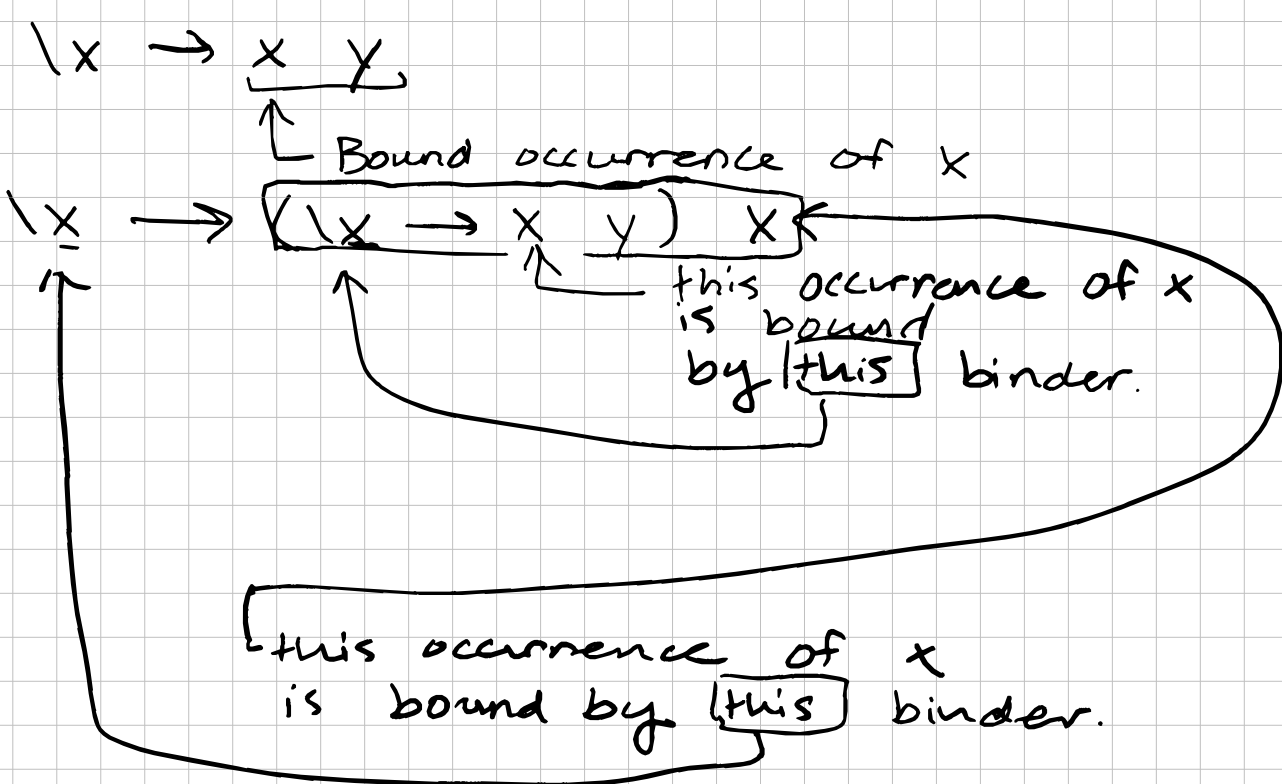 \x → x y
Bound occurrence of x
\x → (\x → x y) x
this occurrence of x
is bound
by this binder.
this occurrence of x
is bound by this binder.